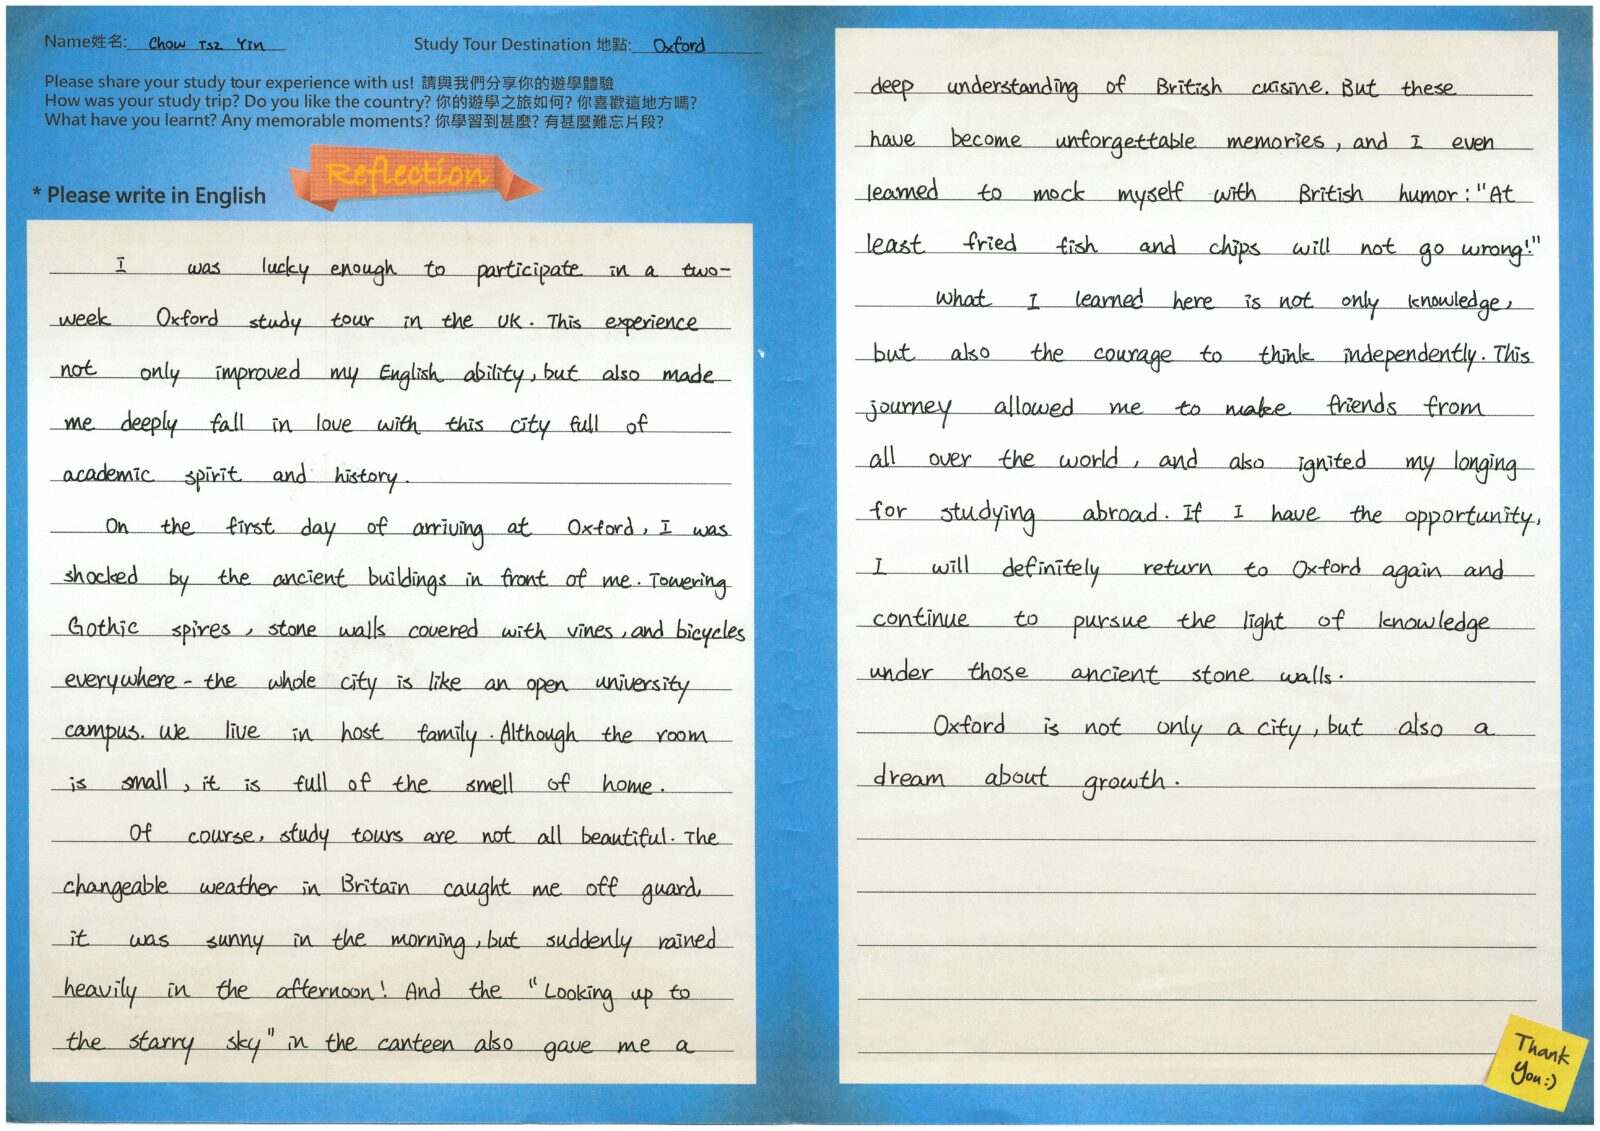 Name姓名: Chow Tsz Yin
Study Tour Destination 地點: Oxford
Please share your study tour experience with us! 請與我們分享你的遊學體驗
How was your study trip? Do you like the country? 你的遊學之旅如何? 你喜歡這地方嗎?
What have you learnt? Any memorable moments? 你學習到甚麼? 有甚麼難忘片段?
Reflection
* Please write in English
I was lucky enough to participate in a two-
week Oxford study tour in the UK. This experience
not only improved my English ability, but also made
me deeply fall in love with this city full of
academic spirit and history.
On the first day of arriving at Oxford, I was
shocked by the ancient buildings in front of me. Towering
Gothic spires, stone walls covered with vines, and bicycles
everywhere - the whole city is like an open university
campus. We live in host family. Although the room
is small, it is full of the smell of home.
Of course, study tours are not all beautiful. The
changeable weather in Britain caught me off guard,
it was sunny in the morning, but suddenly rained
heavily in the afternoon! And the "Looking up to
the starry sky" in the canteen also gave me a
deep understanding of British cuisine. But these
have become unforgettable memories, and I even
learned to mock myself with British humor: "At
least fried fish and chips will not go wrong!"
What I learned here is not only knowledge,
but also the courage to think independently. This
journey allowed me to make friends from
all over the world, and also ignited my longing
for studying abroad. If I have the opportunity,
I will definitely return to Oxford again and
continue to pursue the light of knowledge
under those ancient stone walls.
Oxford is not only a city, but also a
dream about growth.
Thank
You:)